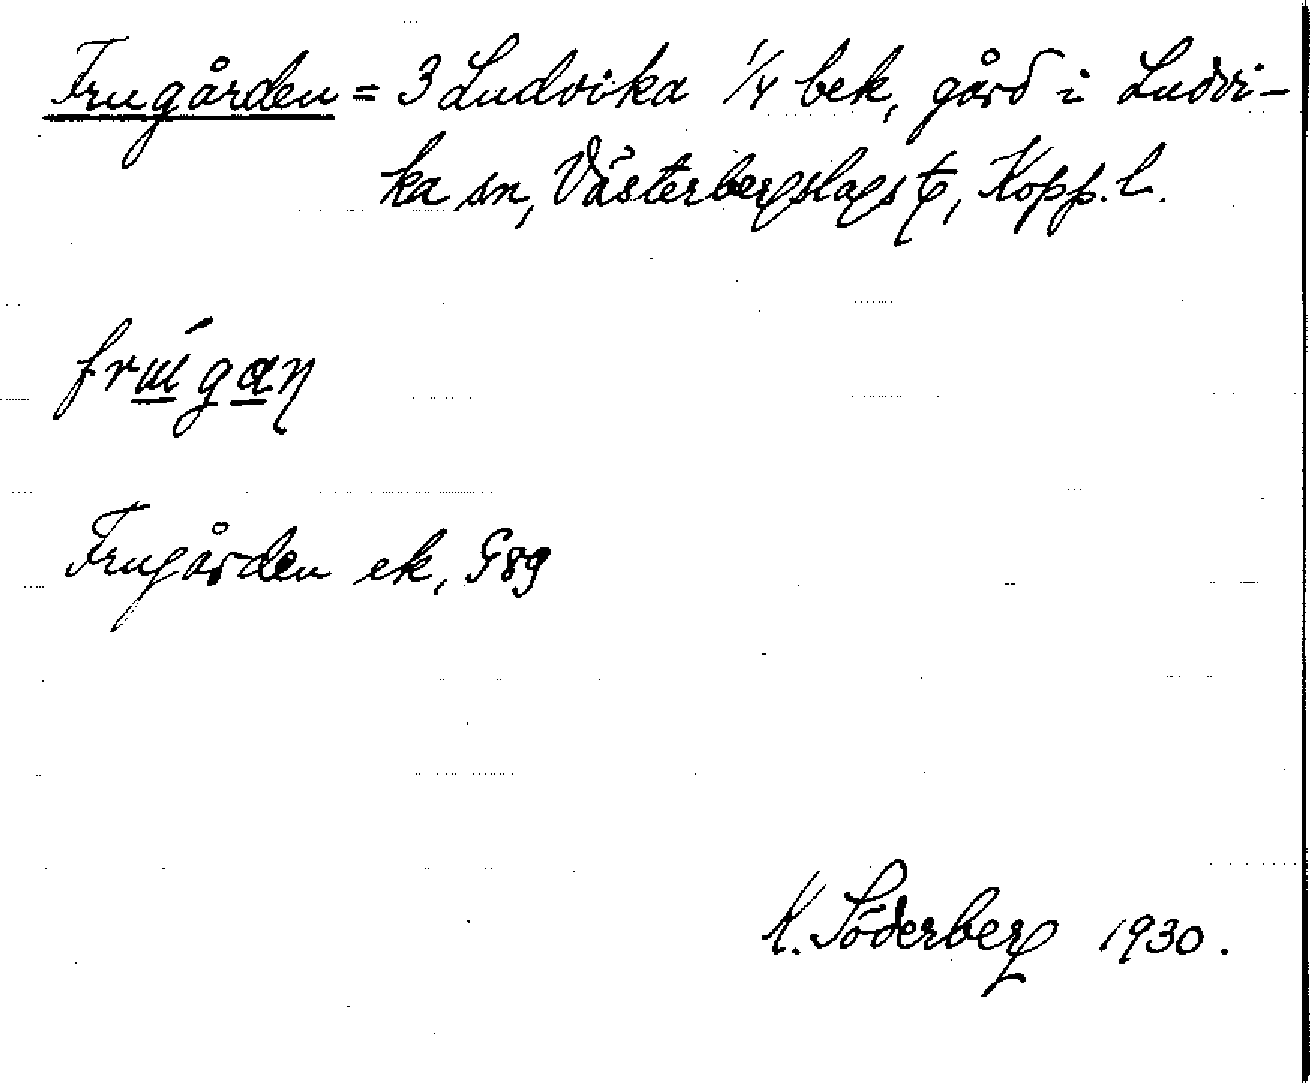 Frugården = 3 Ludvika 1/4 bek, gård i Ludvi-
ka sn, Västerbergslags tg, Kopp. l.
frɯ́gaŋ
Frugården ek, G89
K. Söderberg 1930.